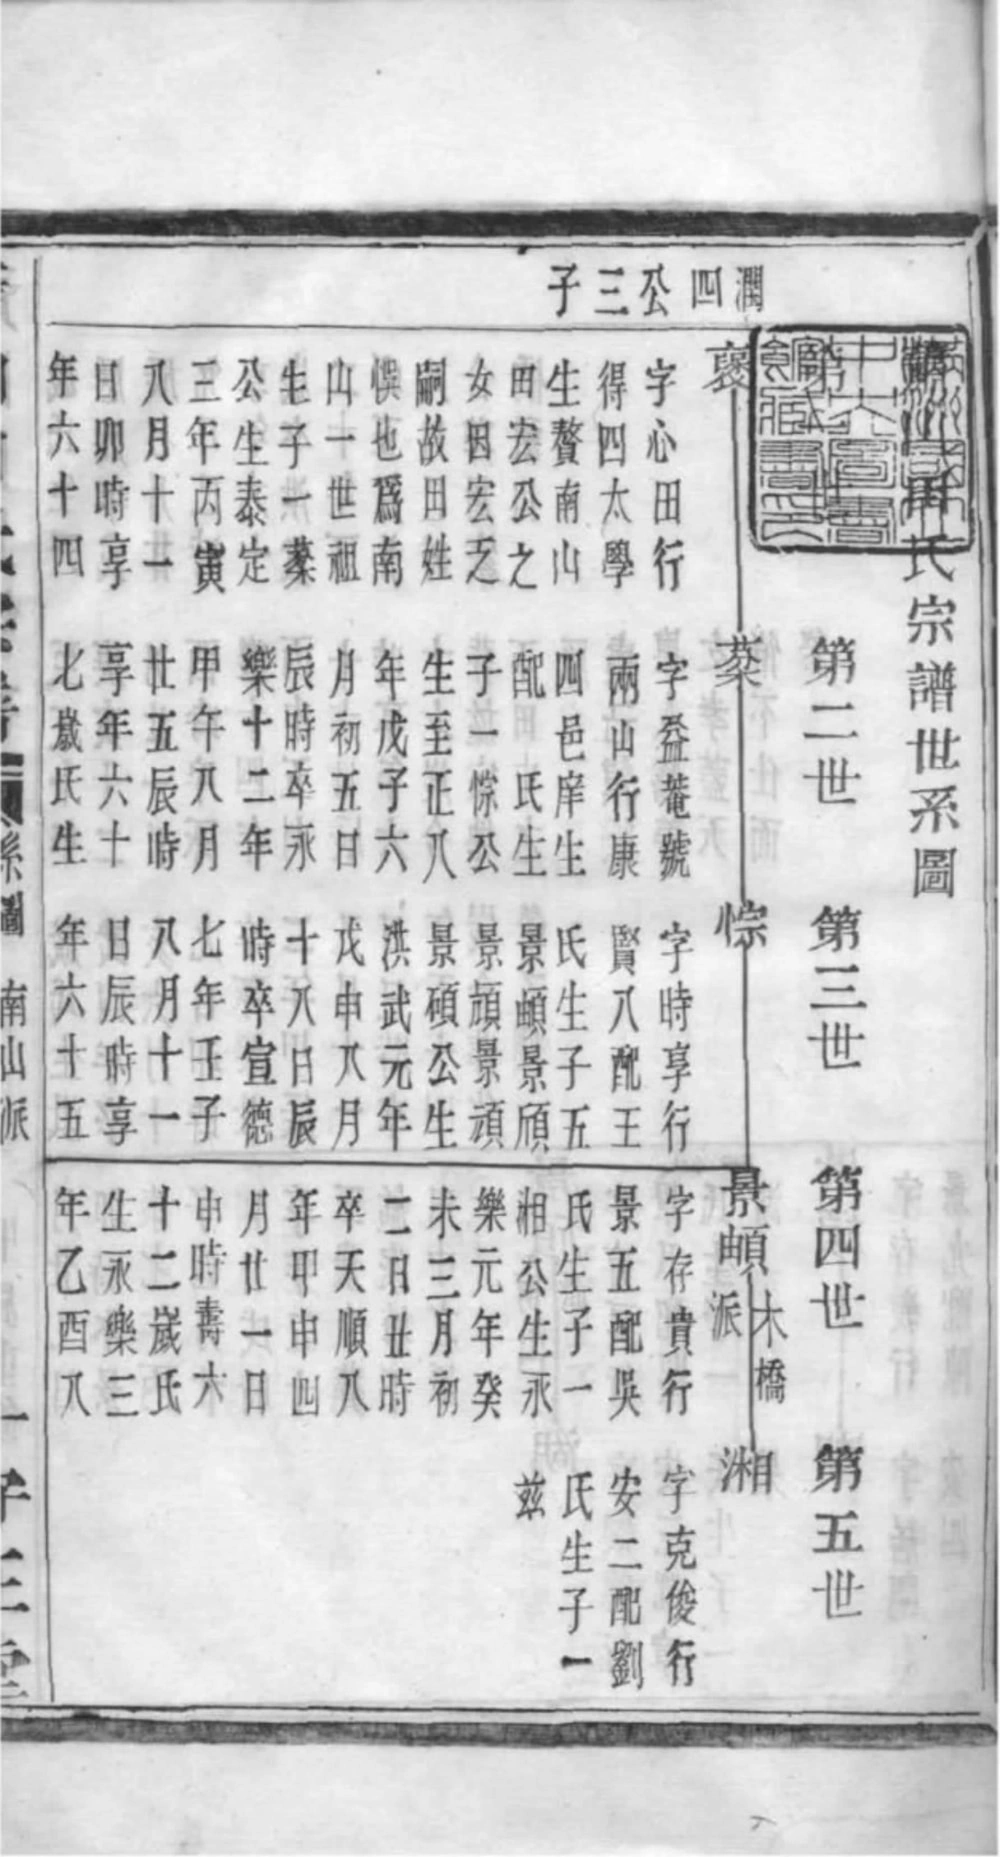 田氏宗譜世系圖
第二世
第三世
第四世
第五世
潤四公三子
褒
字心田行
得四太學
生贅南山
田宏公之
女因宏乏
嗣故田姓
悞也爲南
山一世祖
生子一蓁
公生泰定
三年丙寅
八月十一
日卯時享
年六十四
蓁
字益菴號
兩山行康
四邑庠生
配 氏生
子一悰公
生至正八
年戊子六
月初五日
辰時卒永
樂十二年
甲午八月
廿五辰時
享年六十
七歲氏生
悰
字時享行
賢八配王
氏生子五
景䪼景頎
景頑景頏
景碩公生
洪武元年
戊申八月
十八日辰
時卒宣德
七年壬子
八月十一
日辰時享
年六十五
景䪼
木橋
派
字存貴行
景五配吳
氏生子一
湘公生永
樂元年癸
未三月初
二日丑時
卒天順八
年甲申四
月廿一日
申時壽六
十二歲氏
生永樂三
年乙酉八
湘
字克俊行
安二配劉
氏生子一
兹
系圖
南山派